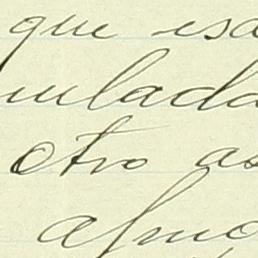 que esa
ulada
otro as
almo